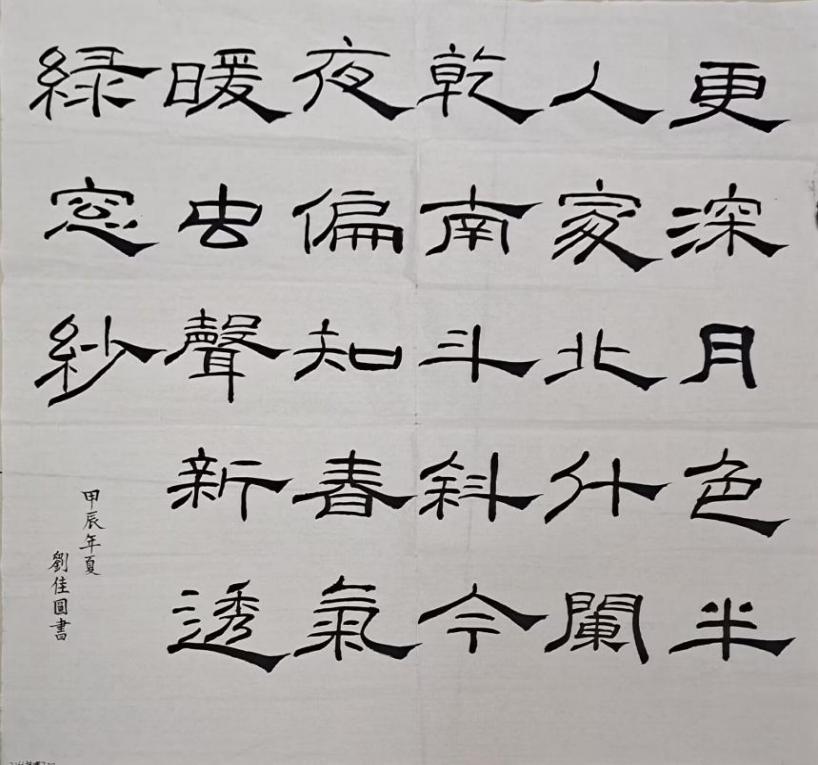 更深月色半
人家北斗闌
乾南斗斜今
夜偏知春氣
暖虫聲新透
緑窓紗
甲辰年夏
劉佳圓書